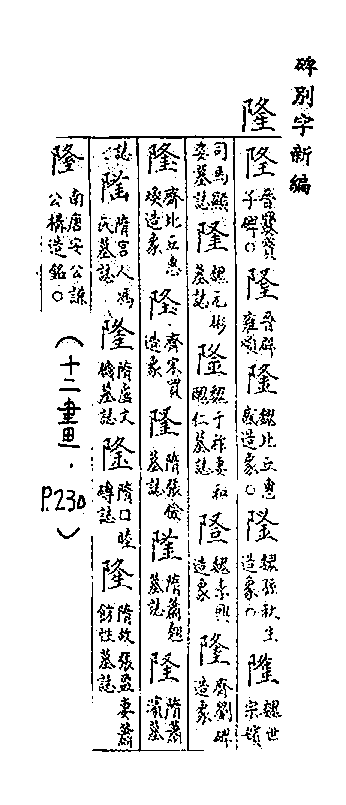 碑別字新編
隆
隆 晉爨寶子碑。隆 晉辟雍頌 隆 魏比丘惠感造象。隆 魏孫秋生造象 隆 魏世宗嬪
司馬顯姿墓誌 隆 魏元彬墓誌 隆 魏于祚妻和醜仁墓誌 隆 魏素興造象 隆 齊劉碑造象
隆 齊比丘惠造象 隆 齊宋買造象 隆 隋張儉墓誌 隆 隋蕭翹墓誌 隆 隋蕭濱墓
誌 隆 隋宮人馮氏墓誌 隆 隋盧文機墓誌 隆 隋口睦磚誌 隆 隋故張盈妻蕭飭性墓誌
隆 南唐安公謙公構造銘。
(十二畫思.P.230)